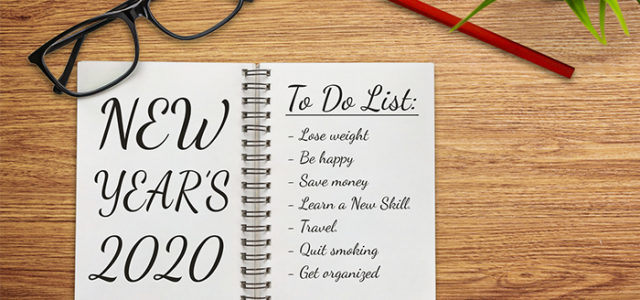 NEW
YEAR'S
2020
To Do List:
- Lose weight
- Be happy
- Save money
- Learn a New Skill.
- Travel.
- Quit smoking
- Get organized